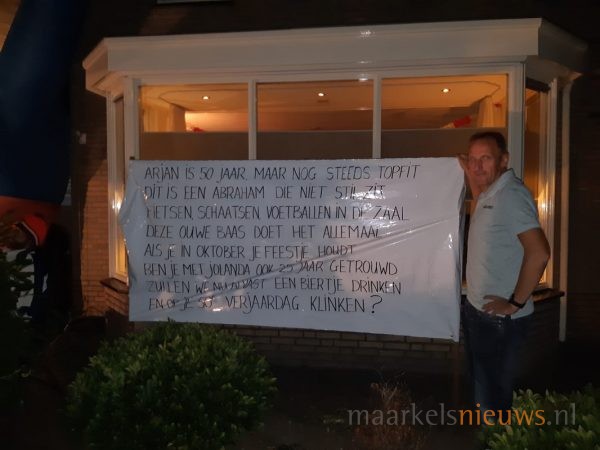 ARJAN IS 50 JAAR, MAAR NOG STEEDS TOPFIT
DIT IS EEN ABRAHAM DIE NIET STIL ZIT
FIETSEN, SCHAATSEN, VOETBALLEN IN DE ZAAL
DEZE OUWE BAAS DOET HET ALLEMAAL
ALS JE IN OKTOBER JE FEESTJE HOUDT
BEN JE MET JOLANDA OOK 25 JAAR GETROUWD
ZULLEN WE NU ALVAST EEN BIERTJE DRINKEN
EN OP JE 50E VERJAARDAG KLINKEN?
maarkelsnieuws.nl